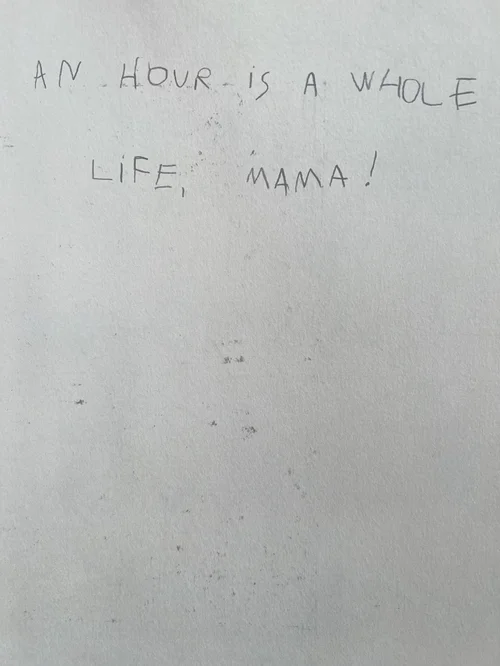 AN HOUR iS A WHOLE
LiFE, MAMA!